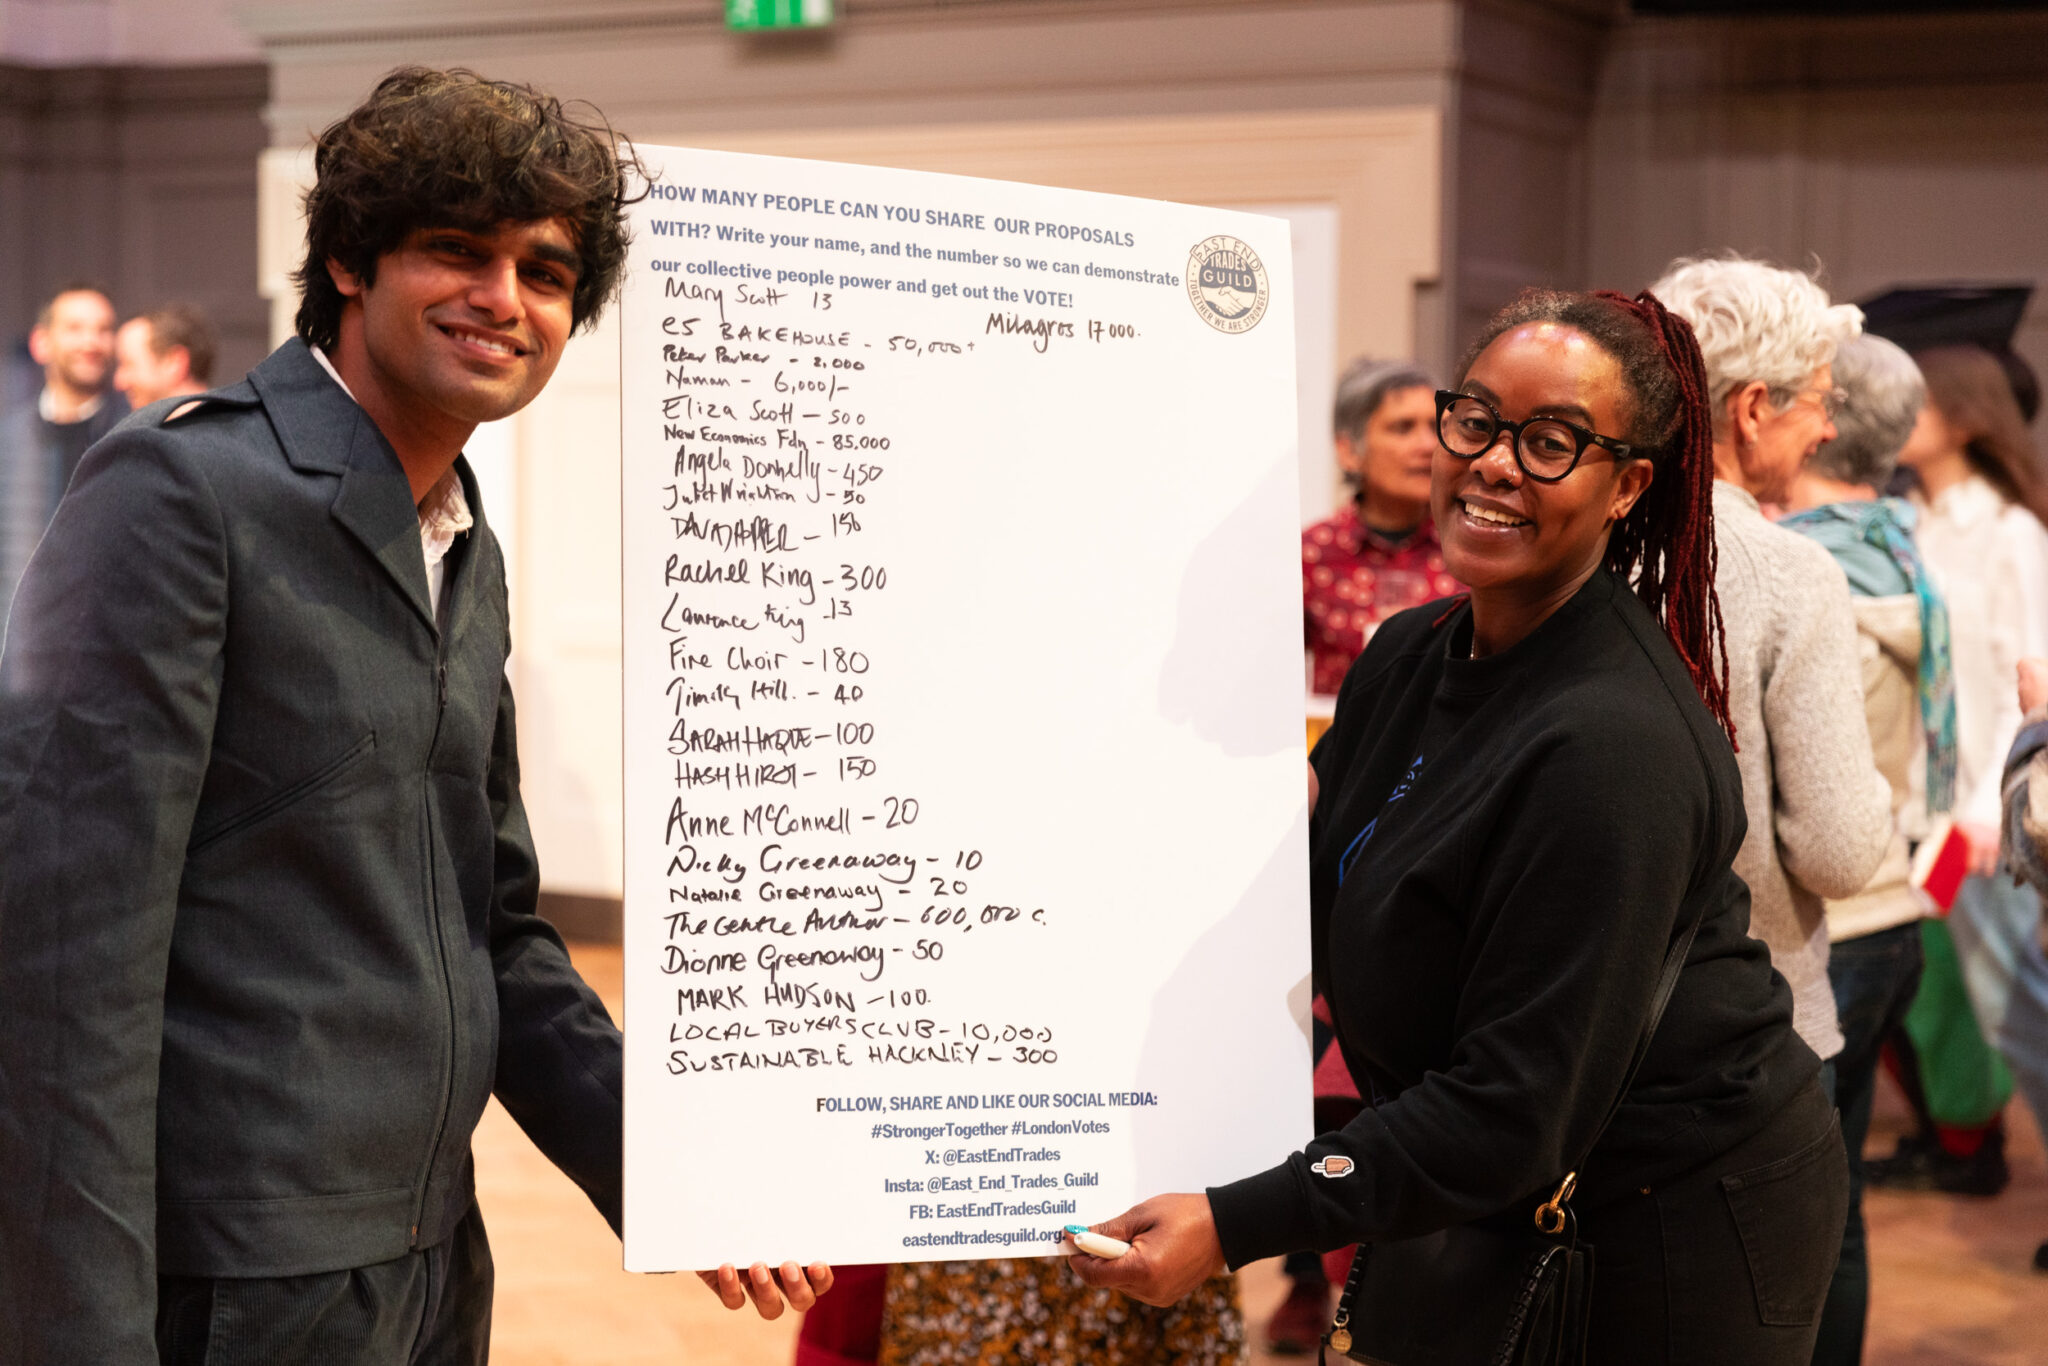 HOW MANY PEOPLE CAN YOU SHARE OUR PROPOSALS
WITH? Write your name, and the number so we can demonstrate
our collective people power and get out the VOTE!
EAST END
TRADES
GUILD
TOGETHER WE ARE STRONGER
Mary Scott 13
Milagros 17000.
e5 BAKEHOUSE - 50,000+
Peter Parker - 2,000
Naman - 6,000/-
Eliza Scott - 500
New Economics Fdn - 85,000
Angela Donnelly - 450
Juliet Wrightson - 50
DAVID HOPPER - 150
Rachel King - 300
Laurance King - 13
Fire Choir - 180
Timothy Hill. - 40
SARAH HAQUE - 100
HASH HIROJI - 150
Anne McConnell - 20
Nicky Greenaway - 10
Natalie Greenaway - 20
The Gentle Author - 600,000 c.
Dionne Greenaway - 50
MARK HUDSON - 100.
LOCAL BUYERS CLUB - 10,000
SUSTAINABLE HACKNEY - 300
FOLLOW, SHARE AND LIKE OUR SOCIAL MEDIA:
#StrongerTogether #LondonVotes
X: @EastEndTrades
Insta: @East_End_Trades_Guild
FB: EastEndTradesGuild
eastendtradesguild.org.